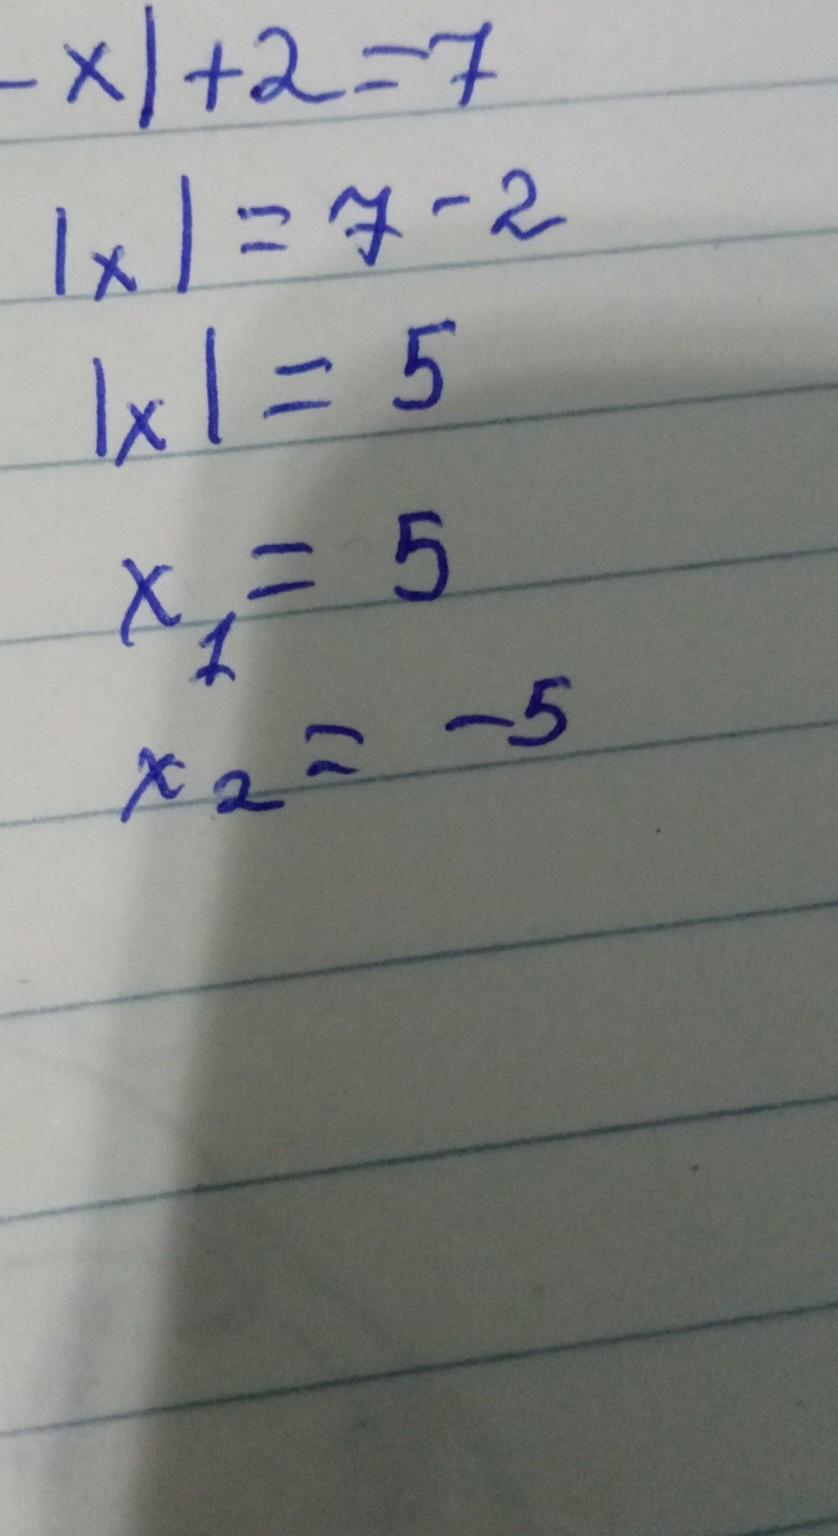 -x|+2=7
|x|=7-2
|x|=5
x₁=5
x₂=-5